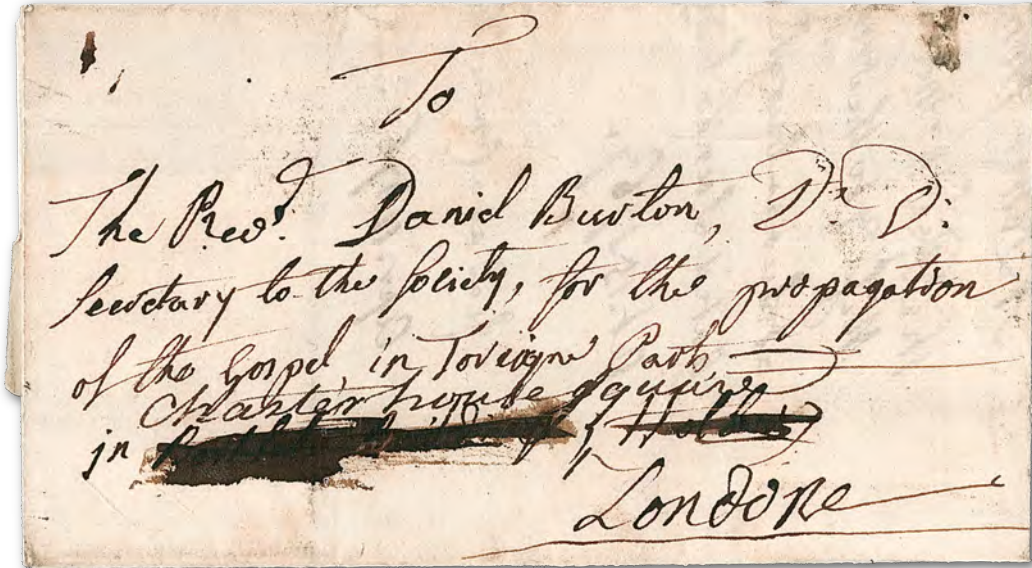 To
The Revd. Daniel Burton, D. D:
Secretary to the Society, for the propagation
of the Gospel in Foreigne Parts
Charterhouse Square
in
Londone